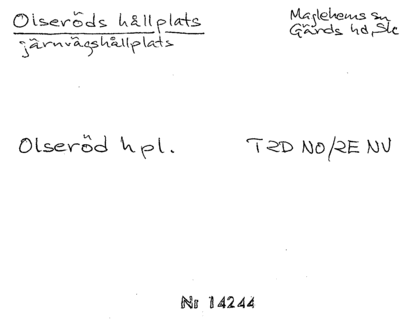 Olseröds hållplats
Maglehems sn
järnvägshållplats
Gärds hd, Sk
Olseröd hpl.
T2D NO/2E NV
Nr 14244